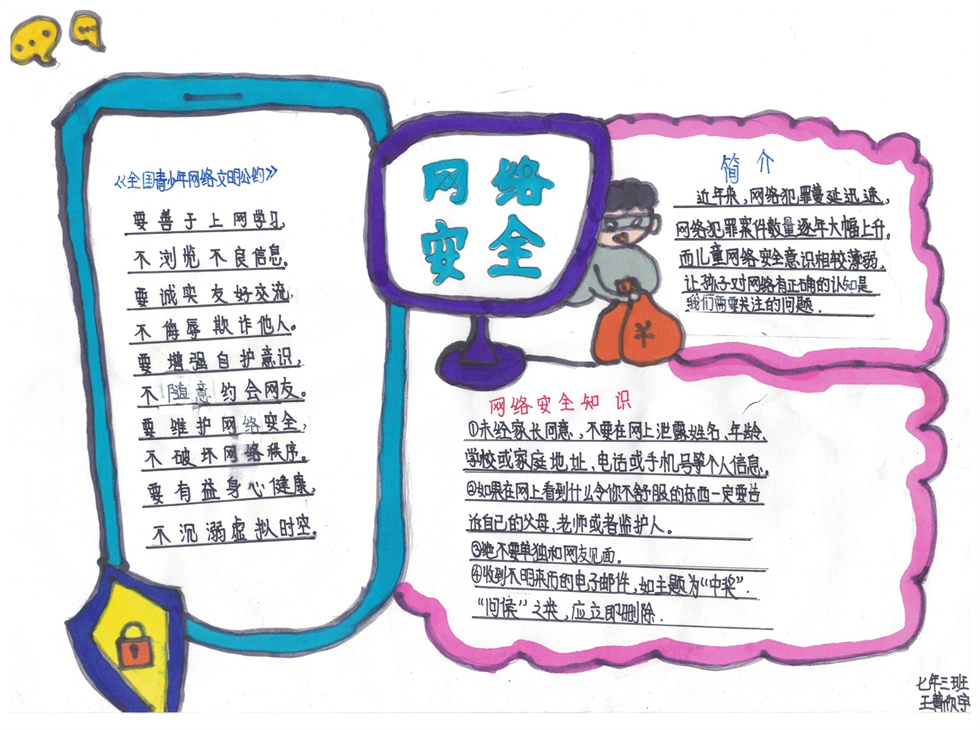 《全国青少年网络文明公约》
要善于上网学习,
不浏览不良信息。
要诚实友好交流,
不侮辱欺诈他人。
要增强自护意识,
不随意约会网友。
要维护网络安全,
不破坏网络秩序。
要有益身心健康,
不沉溺虚拟时空。
网络
安全
简介
近年来,网络犯罪蔓延迅速,
网络犯罪案件数量逐年大幅上升。
而儿童网络安全意识相较薄弱,
让孩子对网络有正确的认知是
我们需要关注的问题.
¥
网络安全知识
①未经家长同意,不要在网上泄露姓名、年龄、
学校或家庭地址、电话或手机号等个人信息。
②如果在网上看到什么令你不舒服的东西一定要告
诉自己的父母、老师或者监护人。
③绝不要单独和网友见面。
④收到不明来历的电子邮件,如主题为“中奖”.
“问候”之类,应立即删除.
七年三班
王